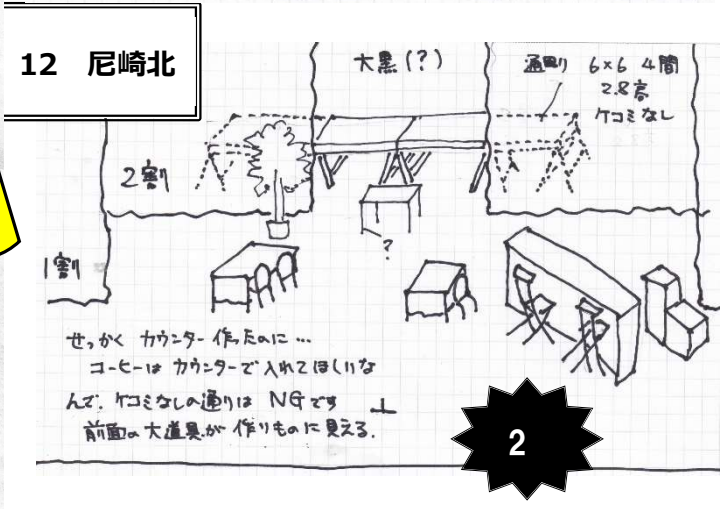 12 尼崎北
大黒(?)
通り 6×6 4間
2.8高
ケコミなし
2割
?
1割
せっかく カウンター作ったのに…
コーヒーは カウンターで 入れてほしいな
んで、ケコミなしの通りは NGです
前面の大道具が 作りものに見える.
2